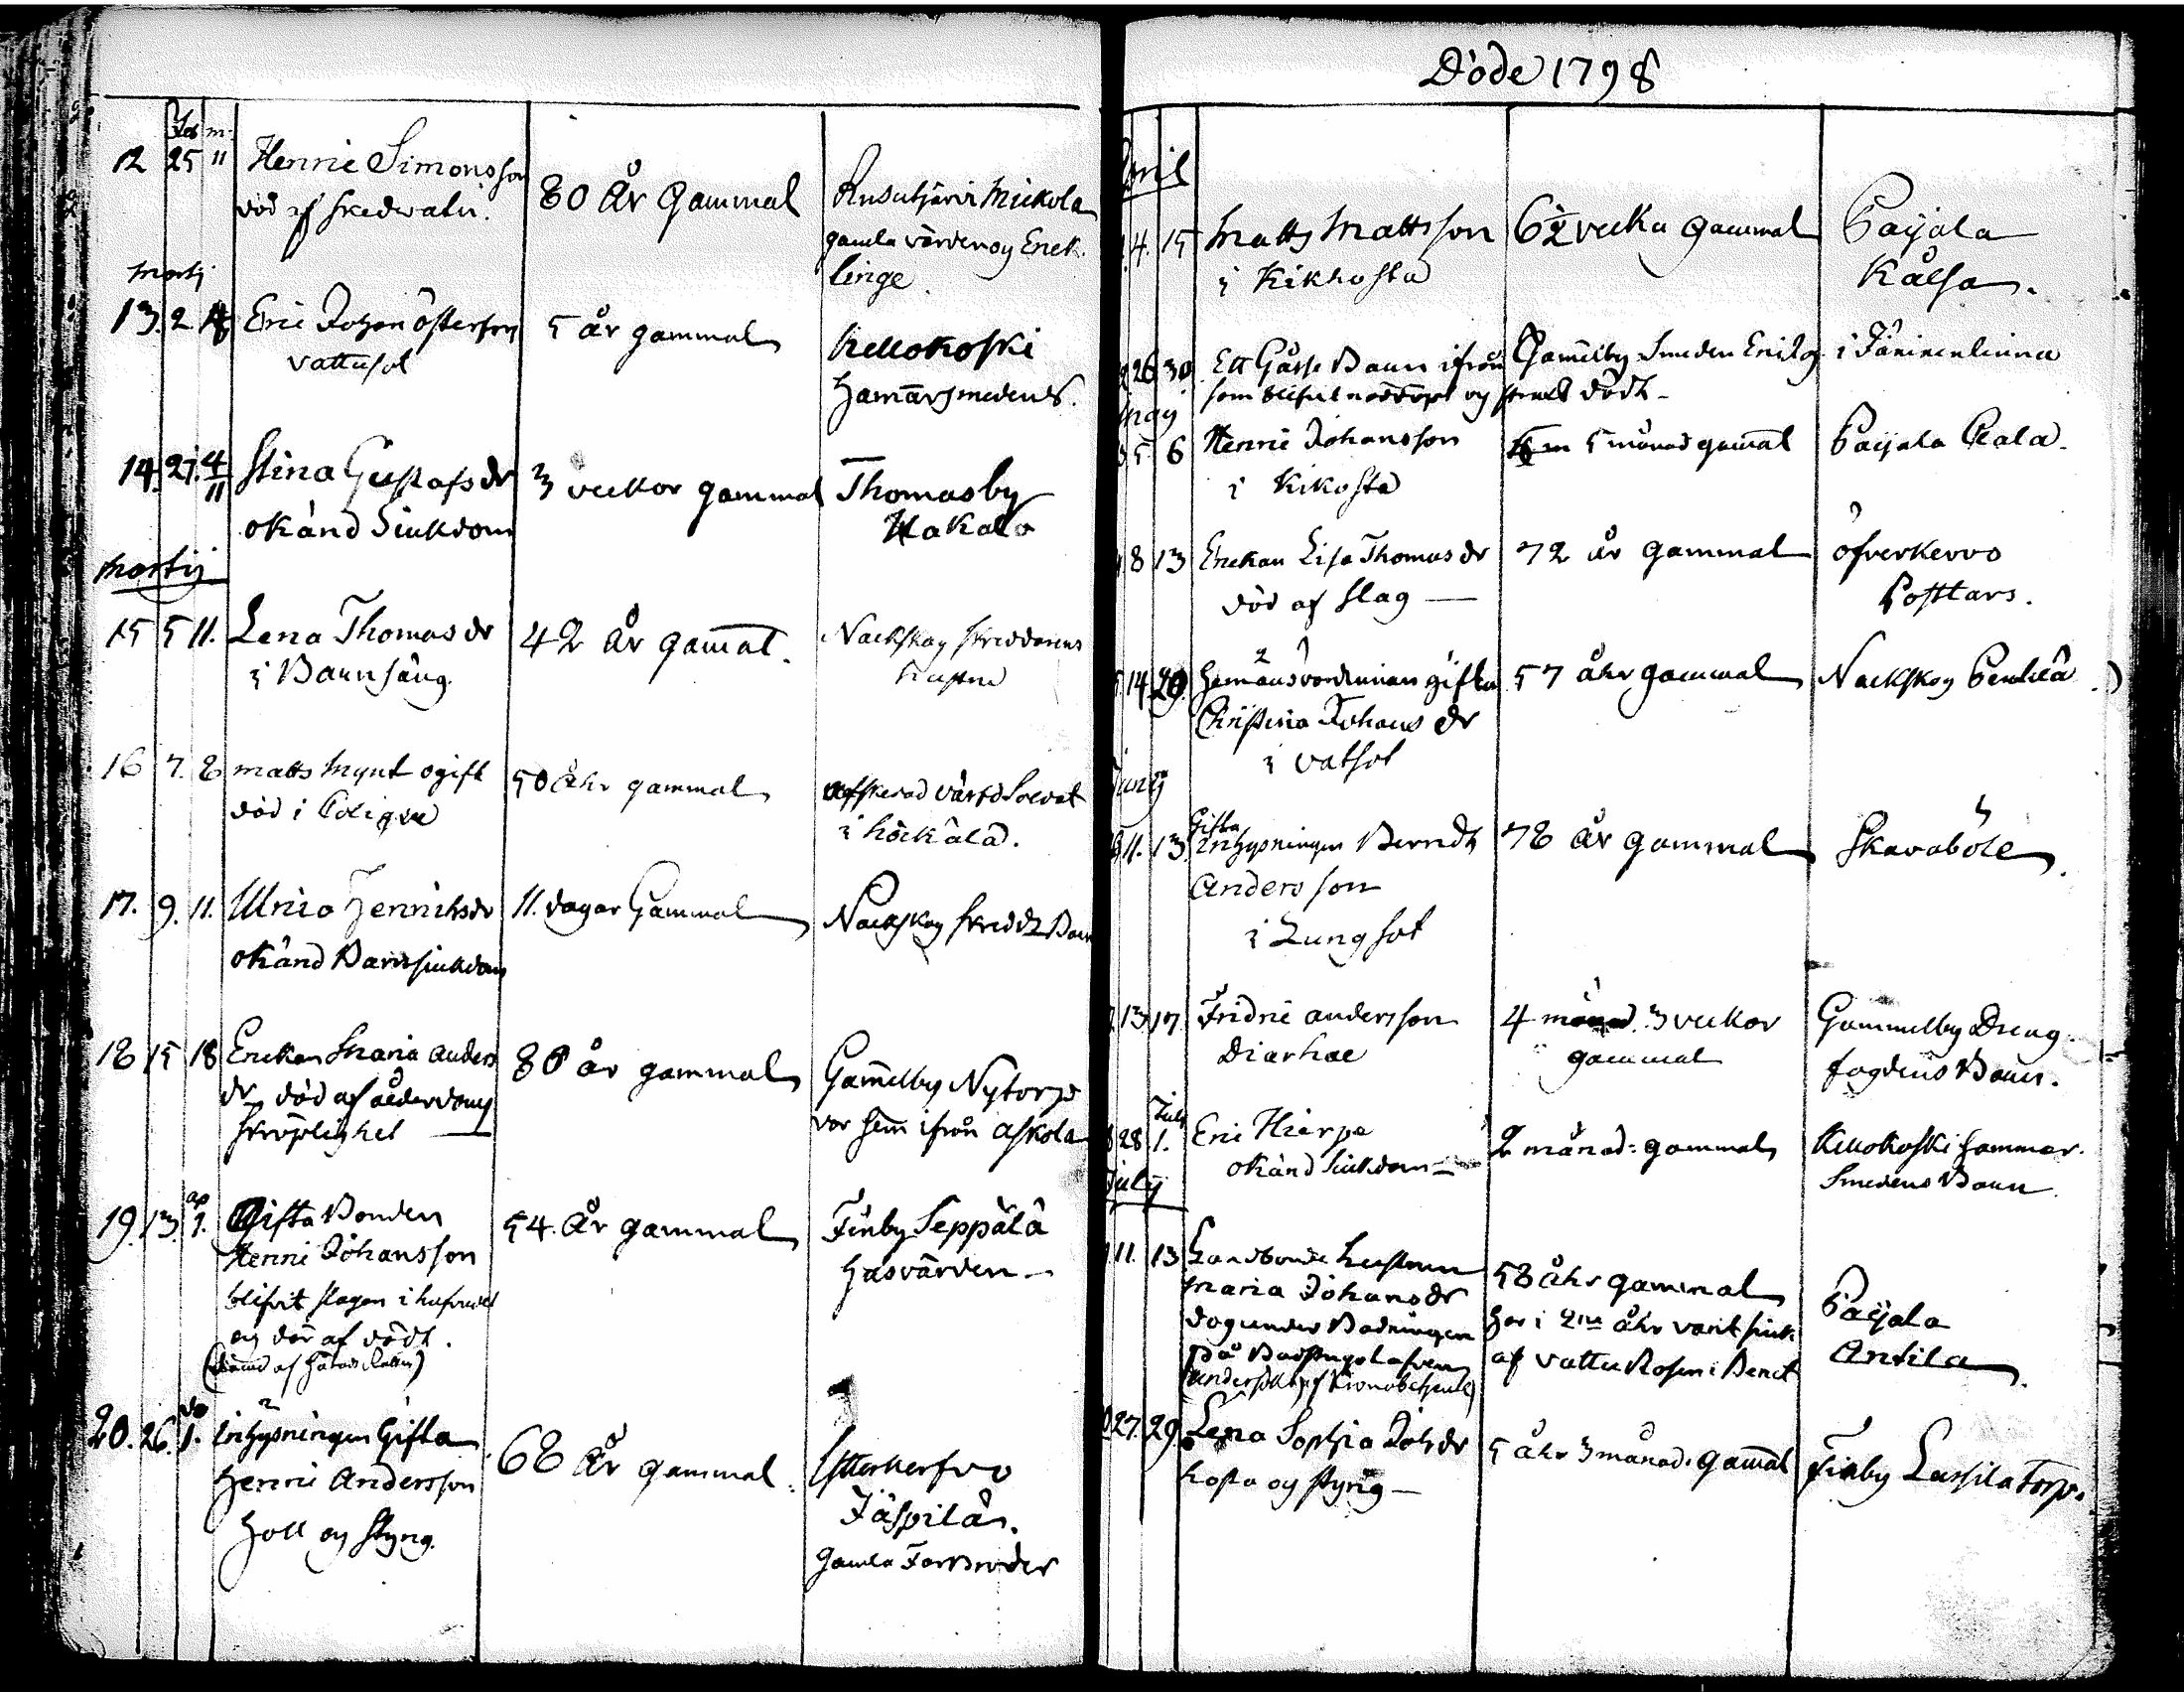 Feb m.
12 25 11 Henric Simonsson 80 år gammal Rusutjärvi Mickola
död af gamla värden og Enck.
linge
Martij
13. 2 4 Eric Johan Österson 5 år gammal Kellokoski
Vattusot Hamarsmedens.
14. 27. 4/11 Stina Gustafs dr 3 veckor gammal Thomasby
okänd Siukdom Hakala
Martij
15 5 11. Lena Thomas dr 42 år gamal. Nackskog skreddarens
i Barnsäng. hustru
16 7. 8 matts Mynt ogift 50 åhr gammal afskedad Soldat
död i Colique i
17. 9. 11. Ulrica Henrichsdr 11. dagar Gammal Nackskog Barn
okänd Barnsiukdom
18 15 18 Enckan Maria anders 80 år gammal Gamelby Nytorp
dr död af ålderdoms var hem ifrån askola
skröplighet
ap
19. 13. 1. Gifta Bonden 54. år gammal Finby Seppälä
Henric Johansson Hasvärden
blifvit slagen i hufvudet
og der af dödt.
do
20. 26. 1. inhysningen Gifta 68 år gammal. Ytterkerfvo
Henric Andersson Jäspilä.
Håll og Styng. gamla Farbroder
Döde 1798
April
4. 15 Matts Mattsson 6 1/2 vecka gammal Paijala
i Kikhosta Kålsa.
26 30 Ett Gåsse Barn ifrån Gamelby Smeden i Jäninenlinna
som blifvit nöddöpt og strax dödt
Maij
5 6 Henric Johansson 5 månad gamal Paijala
i Kikosta
8 13 Enckan Lisa Thomas dr 72 år gammal öfverkervo
död af slag Posttars.
14 20. gifta 57 åhr gammal Nackskog Pentilä
Christina Johans dr
i vatsot
Junij
Gifta
11. 13 Inhysningen Berndt 78 år gammal Skavaböle
Andersson
i Lungsot
13 17 Fridric andersson 4 månad. 3 veckor Gammelby Dreng
Diarhoe gammal fogdens Barn.
July
28 1. Eric Hierpe 2 månad: gammal Kellokoski hammar.
okänd siukdom Smedens Barn
Julij
11. 13 Landbonde hustrun 58 åhr gammal Paijala
Maria Johans dr har i 2ne åhr varit siuk Antila
dog under Badningen af Vattu Rosen i Benet
på
27. 29. Lena Sophia Joh dr 5 åhr 3 månad. gamal Finby Lassila Torp.
hosta og styng